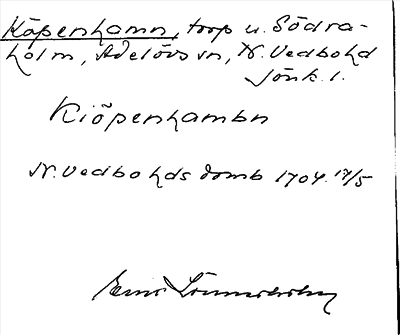 Köpenhamn, torp u. Södra-
holm, Adelövs sn, N. Vedbo hd
Jönk. l.
Kiöpenhambn
N. Vedbo hds domb 1704 17/5